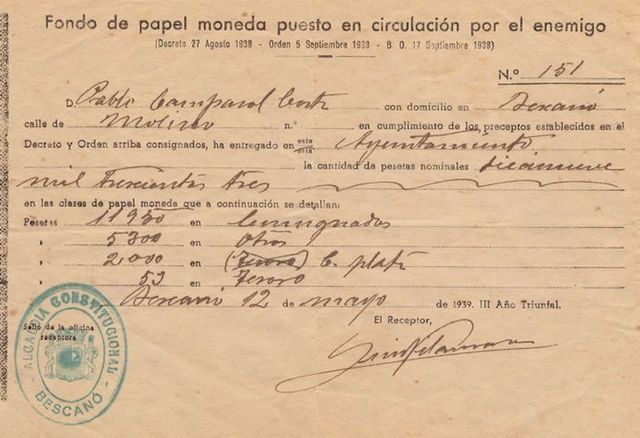 Fondo de papel moneda puesto en circulación por el enemigo
(Decreto 27 Agosto 1938 - Orden 5 Septiembre 1938 - B. O. 17 Septiembre 1938)
N.º 151
D. Pablo con domicilio en Bescanó
calle de Molino n.º en cumplimiento de los preceptos establecidos en el
Decreto y Orden arriba consignados, ha entregado en este esta Ayuntamiento
la cantidad de pesetas nominales diecinueve
mil trescientas tres
en las clases de papel moneda que a continuación se detallan:
Pesetas 11950 en
» 5300 en Otros
» 2,000 en (Tesoro) C. plata
» 53 en Tesoro
Bescanó 12 de mayo de 1939. III Año Triunfal.
El Receptor,
Sello de la oficina
receptora
ALCALDIA CONSTITUCIONAL
- BESCANÓ -